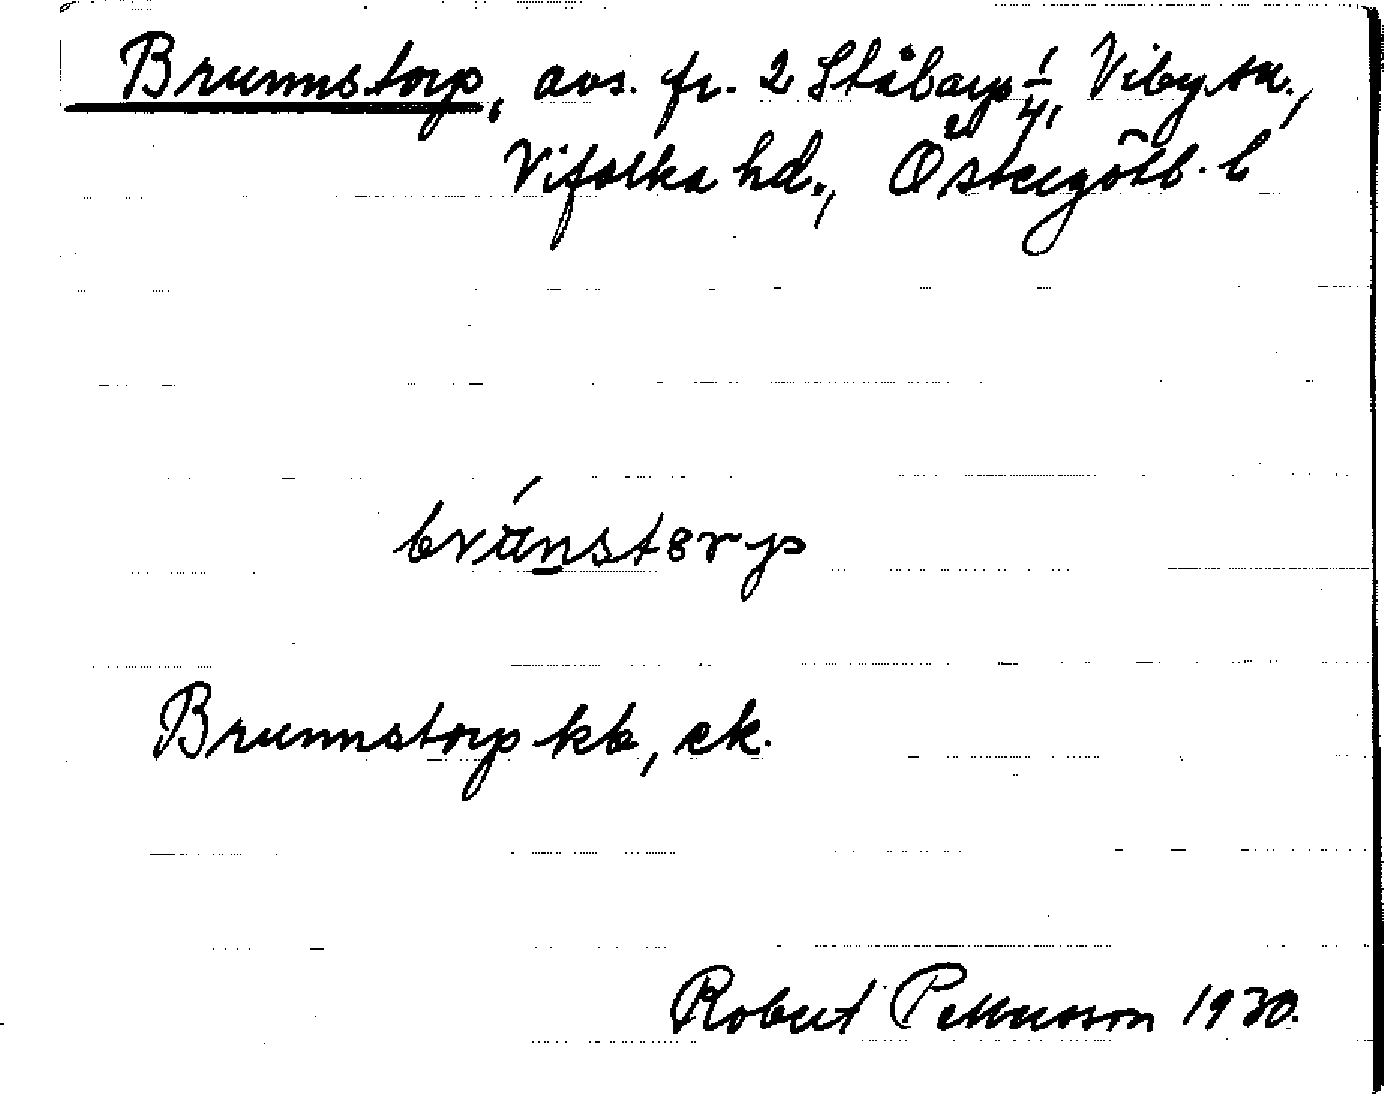 Brunnstorp, avs. fr. 2 Ståbarp 1/4, Viby sn.,
Vifolka hd., Östergötl. l
Brunnstorp kb, ek.
Robert Pettersson 1930.